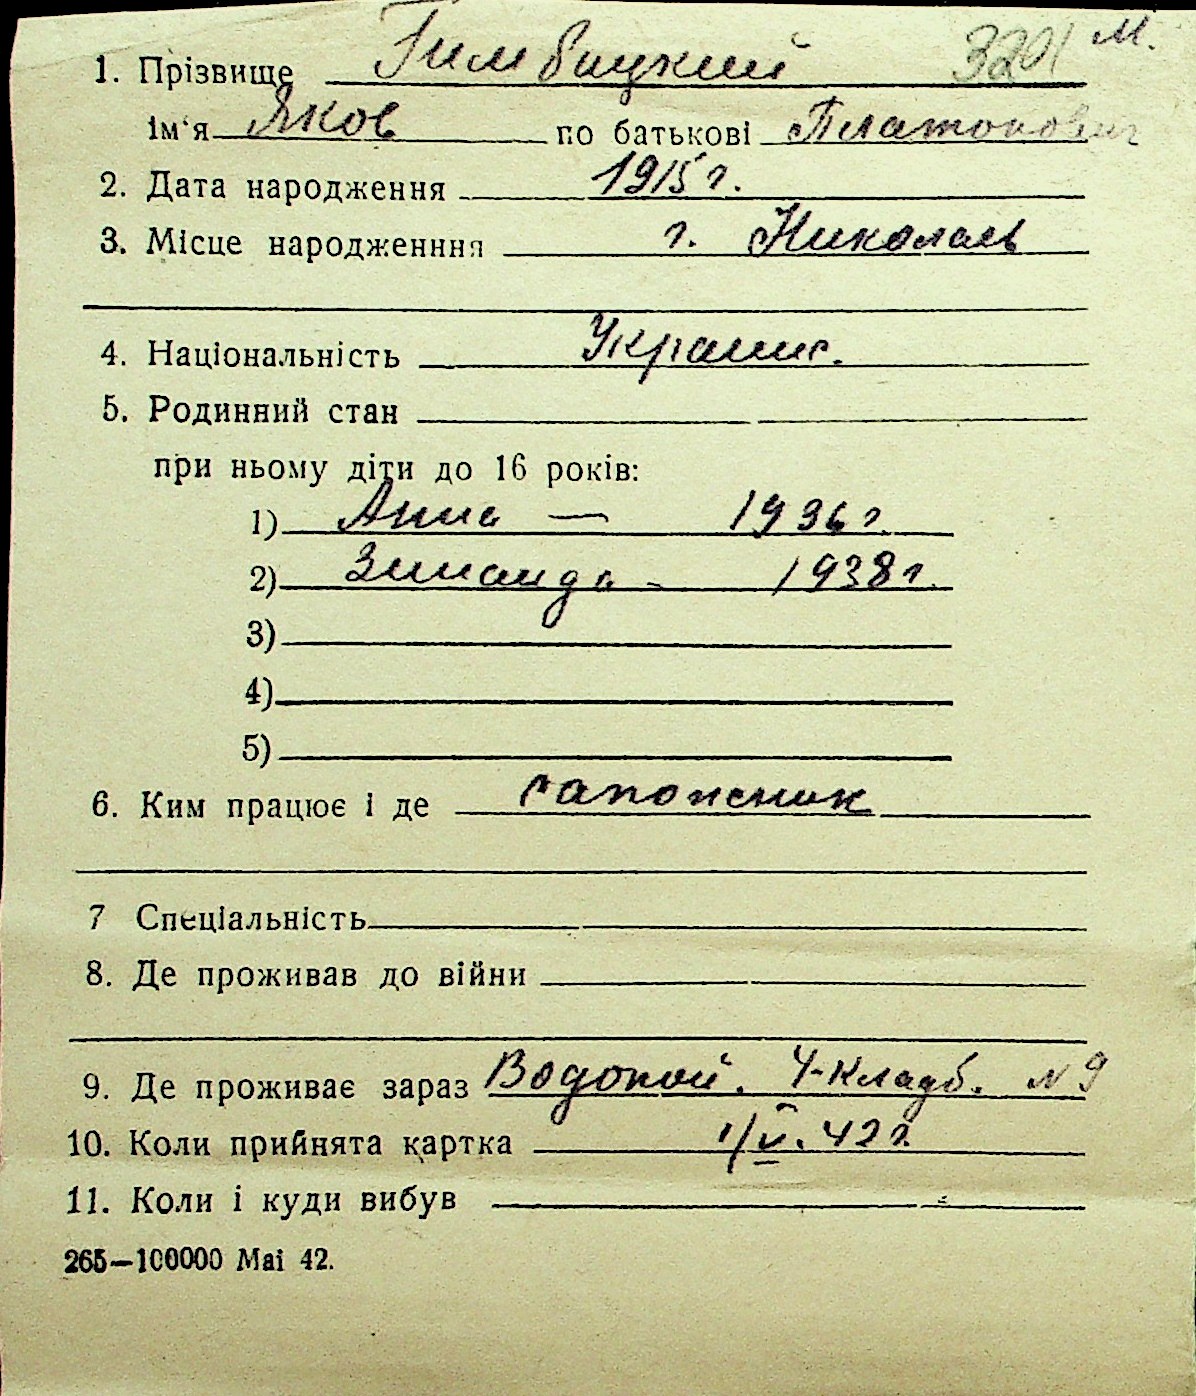 1. Прізвище Гимбицкий 3201 М.
ім'я Яков по батькові Платонович
2. Дата народження 1915 г.
3. Місце народженння г. Николаев
4. Національність Украинс.
5. Родинний стан
при ньому діти до 16 років:
1) Анна — 1936 г.
2) Зинаида - 1938 г.
3)
4)
5)
6. Ким працює і де сапожник
7 Спеціальність
8. Де проживав до війни
9. Де проживає зараз Водопой. 4-Кладб. № 9
10. Коли прийнята картка 1/V. 42 г.
11. Коли і куди вибув
265—100000 Mai 42.